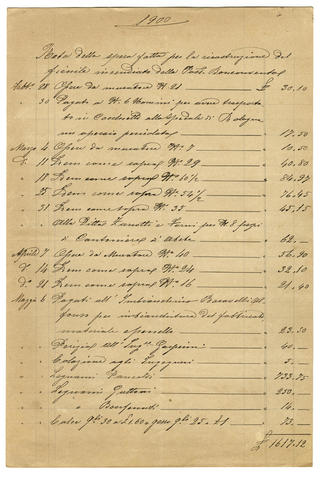 1900
Nota delle spese fatte per la ricostruzione del
fienile incendiato della Poss. Bonconvento
Febb. 28 Opere da muratore N. 21 £ 30,10
" 30 Pagato a N. 6 uomini per avere trasporta
to in Cocchetto allo Spedale di Bologna
un operaio pericolato 17.50
Marzo 4 Opere da muratore N. 7 10,50
D. 11 Idem come sopra N. 29 40,80
" 18 Idem come sopra N. 84,97
" 25 Idem come sopra N. 54½ 76.45
" 31 Idem come sopra N. 33 45,15
" Alla Ditta Zanotti e per N. 8 pezzi
di Cantoniera d'abete 62.—
Aprile 7 Opere da Muratore N. 40 56.90
D. 14 Idem come sopra N. 24 32,10
D. 21 Idem come sopra N. 16 21.40
Maggio 6 Pagati all'Imbianchino
fonso per imbiancatura del fabbricato
materiale 23.50
" Perizia all'Ing. 40.—
" Colazione agli Ingegneri 5.—
" Legnami 733.75
" Legnami 250.—
" " 14.—
" Calce q.li 30 a £1.60 e gesso q.li 25 a £1 73.—
£ 1617.12